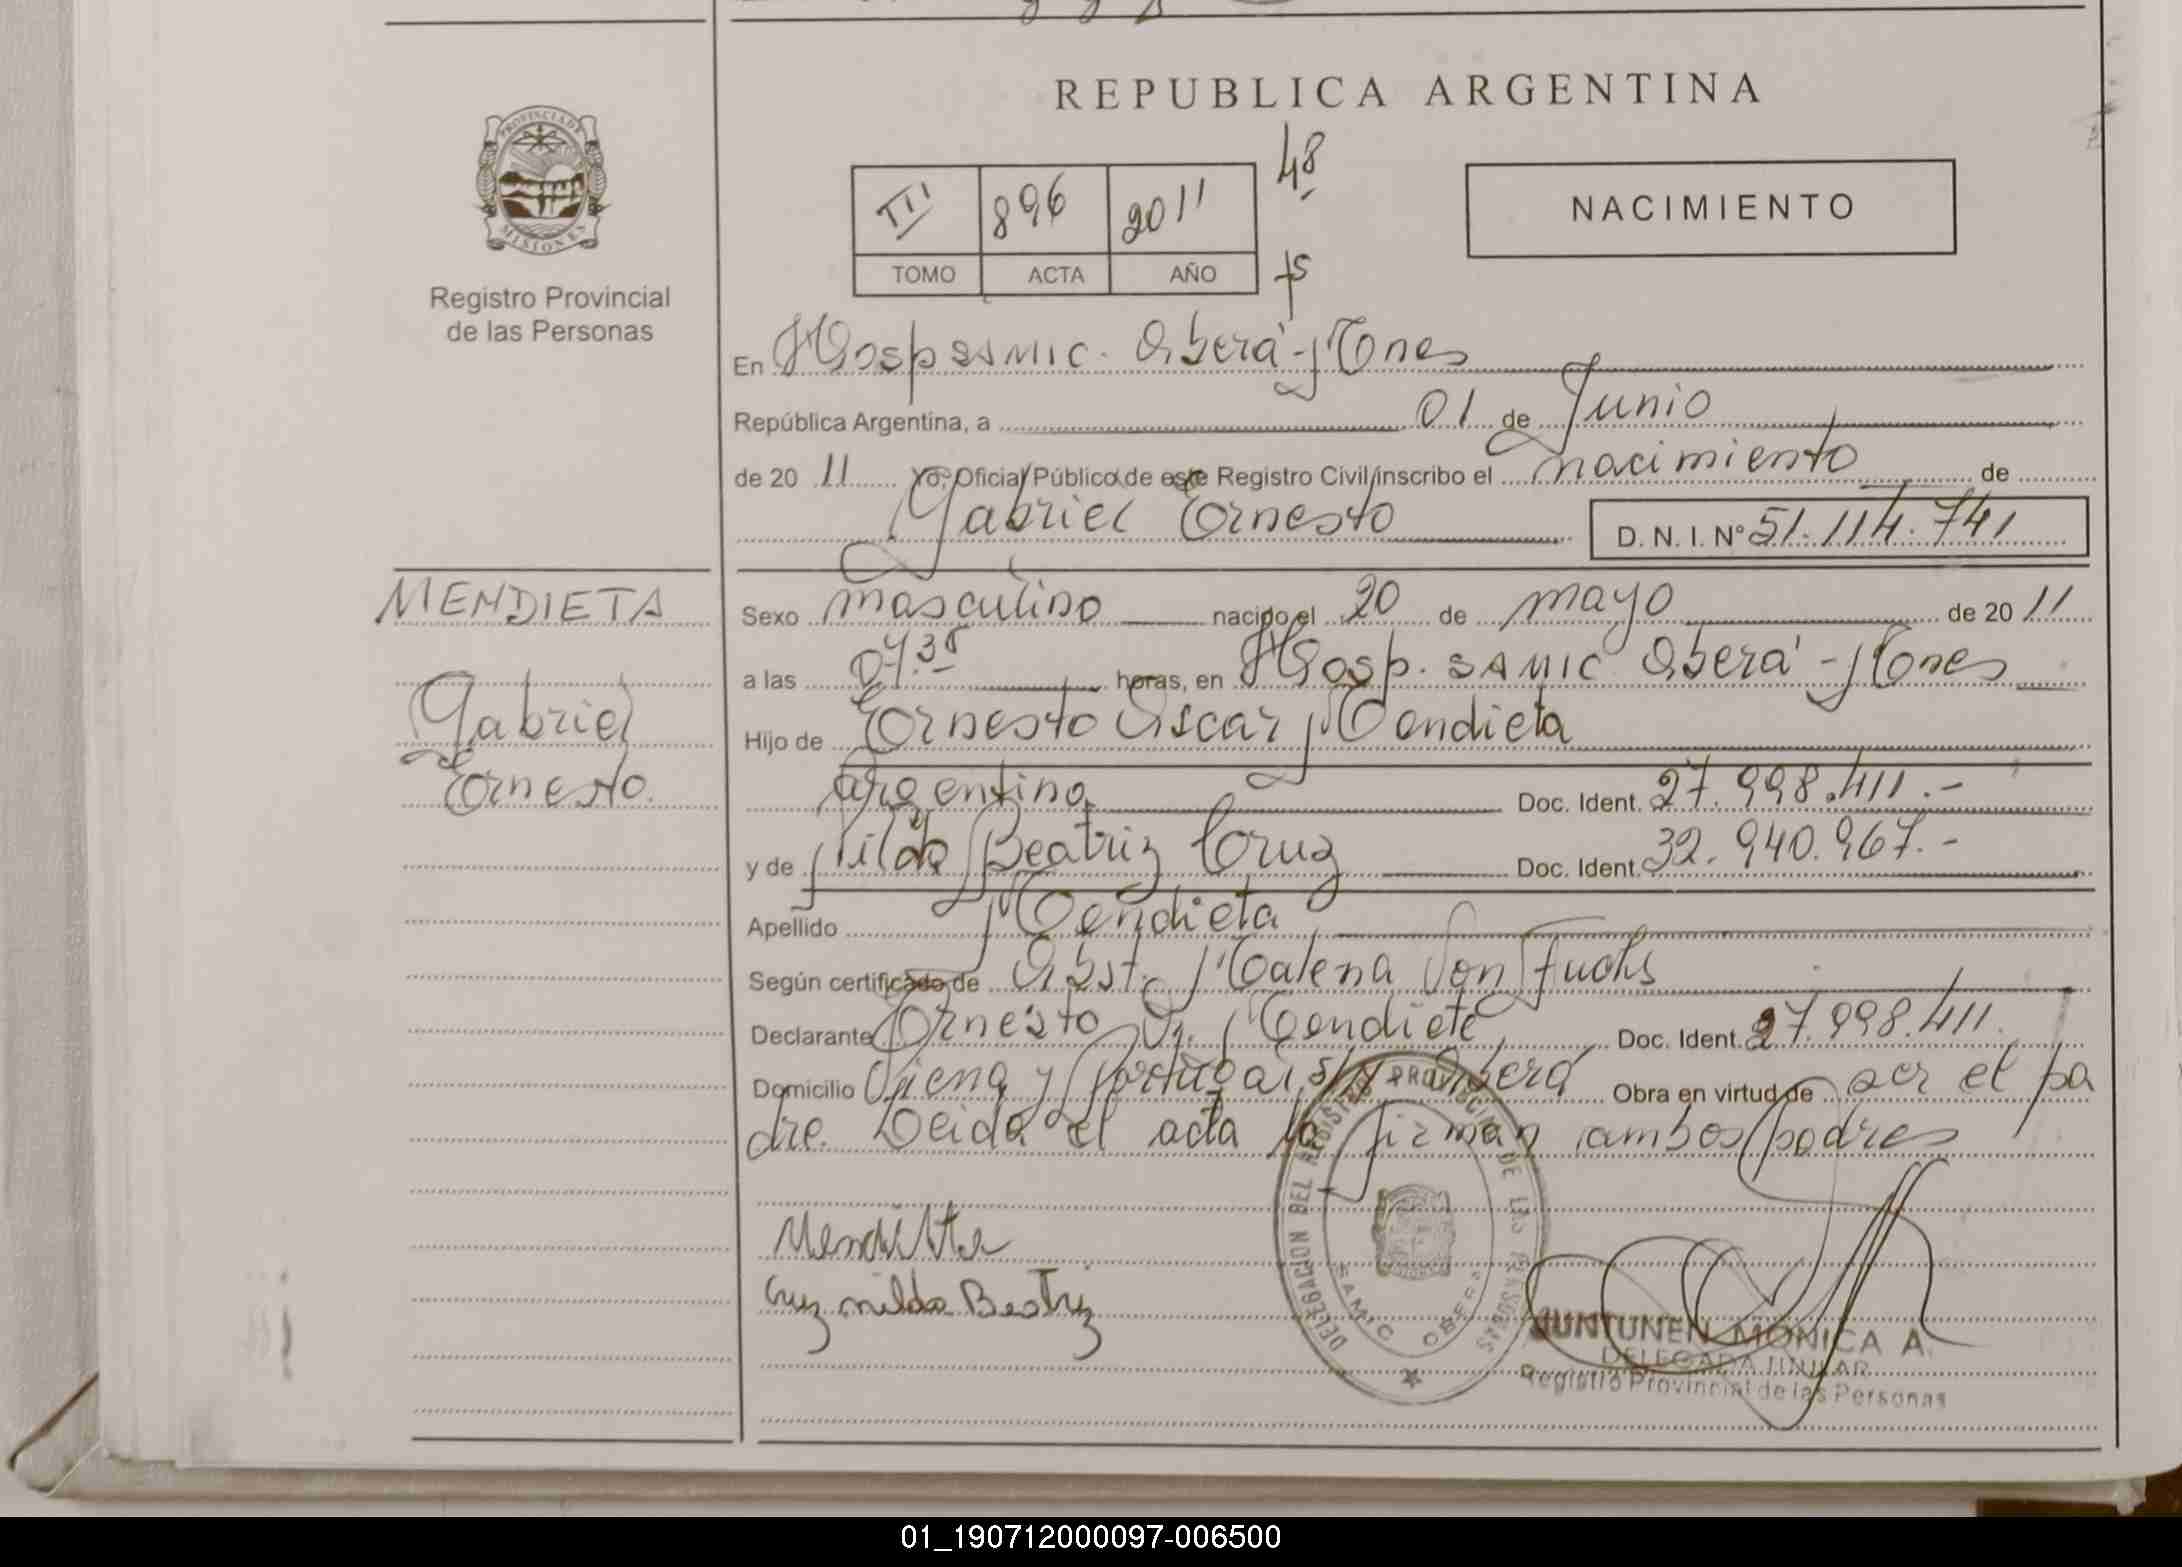 REPUBLICA ARGENTINA
PROVINCIA DE
MISIONES
Registro Provincial
de las Personas
III 896 2011
TOMO ACTA AÑO
48
NACIMIENTO
En Hosp SAMIC. Oberá-Mones
República Argentina, a 01 de Junio
de 20 11 Yo, Oficial Público de este Registro Civil inscribo el nacimiento de
Gabriel Ernesto D. N. I. Nº 51.114.741
MENDIETA
Gabriel
Ernesto.
Sexo masculino nacido el 20 de mayo de 20 11
a las horas, en Hosp. SAMIC Oberá-Mones
Hijo de Ernesto Oscar Mendieta
Argentino Doc. Ident. 27.998.411.-
y de Nilda Beatriz Cruz Doc. Ident. 32.940.967.-
Apellido Mendieta
Según certificado de Obst. Malena Von Fuchs
Declarante Ernesto O. Mendieta Doc. Ident. 27.998.411.
Domicilio y Portugal s/n Oberá Obra en virtud de ser el pa
dre. Leida el acta la firman ambos padres
Mendieta
Cruz nilda Beatriz
DELEGACION DEL REGISTRO PROVINCIAL DE LAS PERSONAS
SAMIC OBERA
JUNTUNEN MONICA A.
DELEGADA TITULAR
Registro Provincial de las Personas
01_190712000097-006500